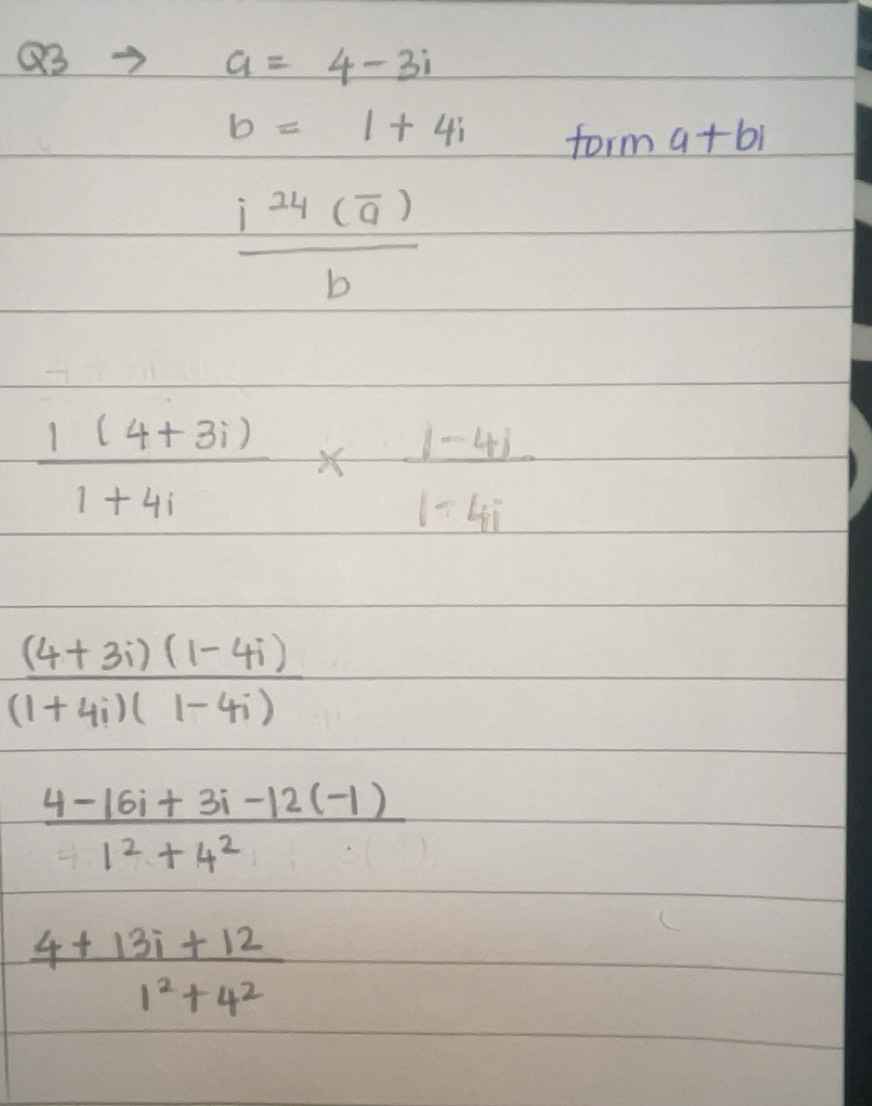 Q3 → a = 4 - 3i
b = 1 + 4i form a + bi
i^24 (a̅)
b
1 (4 + 3i) × 1 - 4i
1 + 4i 1 - 4i
(4 + 3i) (1 - 4i)
(1 + 4i) ( 1 - 4i)
4 - 16i + 3i - 12 (-1)
1² + 4²
4 + 13i + 12
1² + 4²